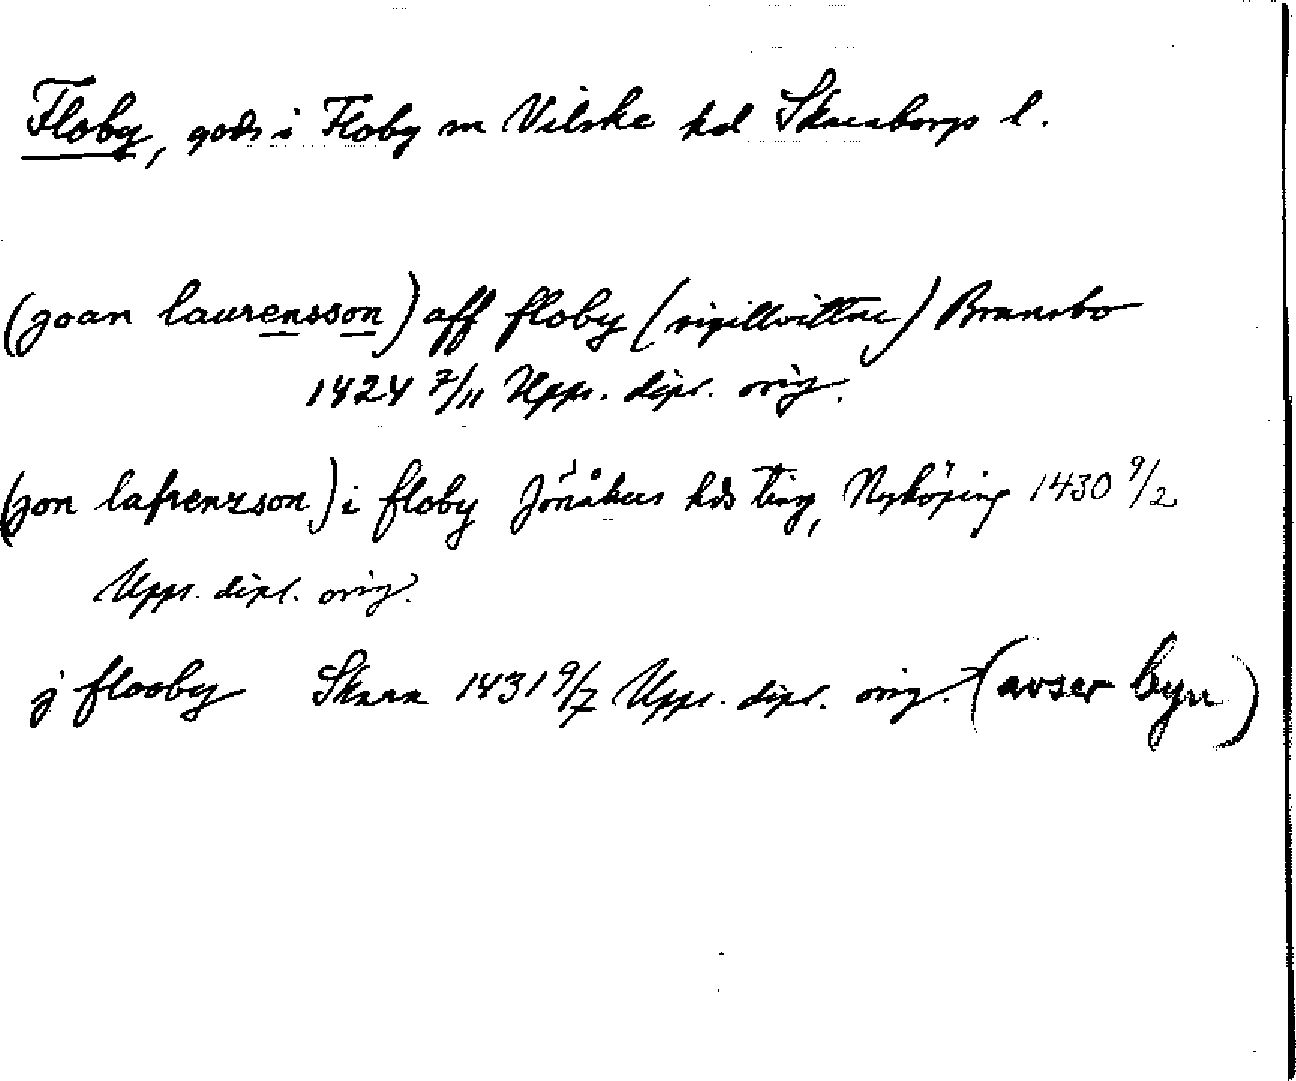 Floby, gods i Floby sn Vilske hd Skaraborgs l.
(joan laurensson) aff floby (sigillvittne) Bransbo
1424 7/11 Upps. dipl. orig.
(jon lafrenzson) i floby Jönåkers hds ting, Nyköping 1430 9/2
Upps. dipl. orig.
j flooby Skara 1431 9/7 Upps. dipl. orig. (avser byn)